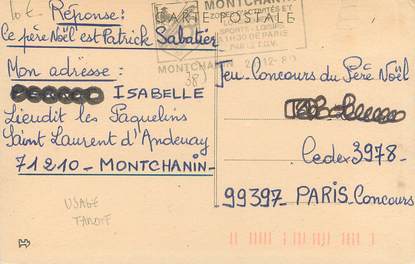 10€
Réponse:
CARTE POSTALE
le père Noël est Patrick Sabatier
MONTCHANIN
ZONES D'ACTIVITÉS ET
SPORTS - LOISIRS
A 1H30 DE PARIS
PAR LE T.G.V.
MONTCHANIN
Mon adresse :
ISABELLE
Lieudit les Paquelins
Saint Laurent d'Andenay
71210 - MONTCHANIN -
Jeu-Concours du Père Noël
Cedex 3978 -
99397 - PARIS Concours
USAGE
TARDIF